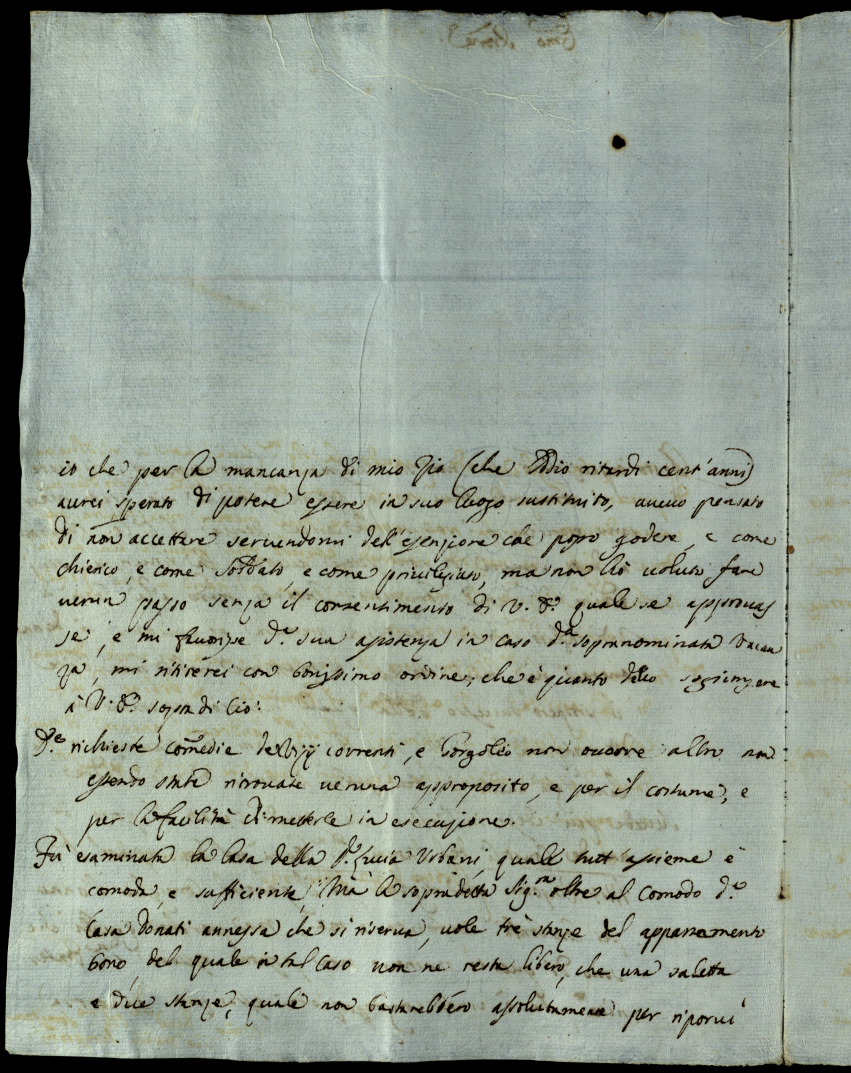 io che per la mancanza di mio Zio (che Iddio ritardi cent'anni)
aurei sperato di potere essere in suo luogo sustituito, aueuo pensato
di non accettare seruendomi dell'esenzione che posso godere, e come
chierico, e come soldato, e come priuilegiato, ma non hò uoluto fare
uerun passo senza il consentimento di V. S. quale se approuas
se, e mi fauorisse d. sua assistenza in caso d. sopranominata Vacan
za, mi ritirerei con bonissimo ordine; che è quanto deuo soggiungere
à V. S. sopra di ciò:
D.e richieste comedie de correnti, e non occore altro non
essendo state ritrouate ueruna approposito, e per il costume, e
per la facilità di metterle in esecuzione.
Fù esaminata la Casa della Lucia Vrbani, quale tutt'assieme è
comoda, e sufficiente, Mà la sopradetta Sig.ra oltre al comodo d.
Casa Donati annessa che si riserua, uole trè stanze del appartamento
bono del quale in tal caso non ne resta libero, che una saletta
e due stanze, quale non bastarebbero assolutamente per riporui